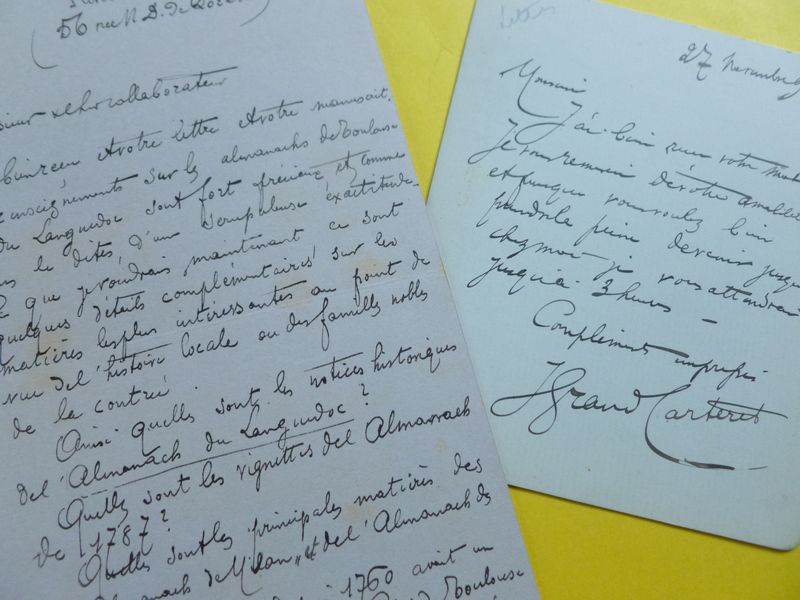 56 rue N. D. de
cher collaborateur
bien reçu votre lettre et votre manuscrit.
renseignements sur les almanachs de Toulouse
du Languedoc sont fort précieux et comme
le dites, d'un scrupuleuse exactitude.
que je voudrais maintenant ce sont
quelques détails complémentaires sur les
matières les plus intéressantes au point de
vue de l'histoire locale ou des familles nobles
de la contrée.
Ainsi quelles sont les notices historiques
de l'Almanach du Languedoc ?
Quelles sont les vignettes de l'Almanach
de 1787 ?
Quelles sont les principales matières des
de Milan et de l'Almanach de
1760 avait un
Toulouse
Lettres
27 novembre
Monsieur
J'ai bien reçu votre
Je vous remercie de votre
et puisque vous voulez bien
prendre la peine de venir jusque
chez moi je vous attendrai
jusqu'à 3 heures –
Compliments empressés
J Grand Carteret